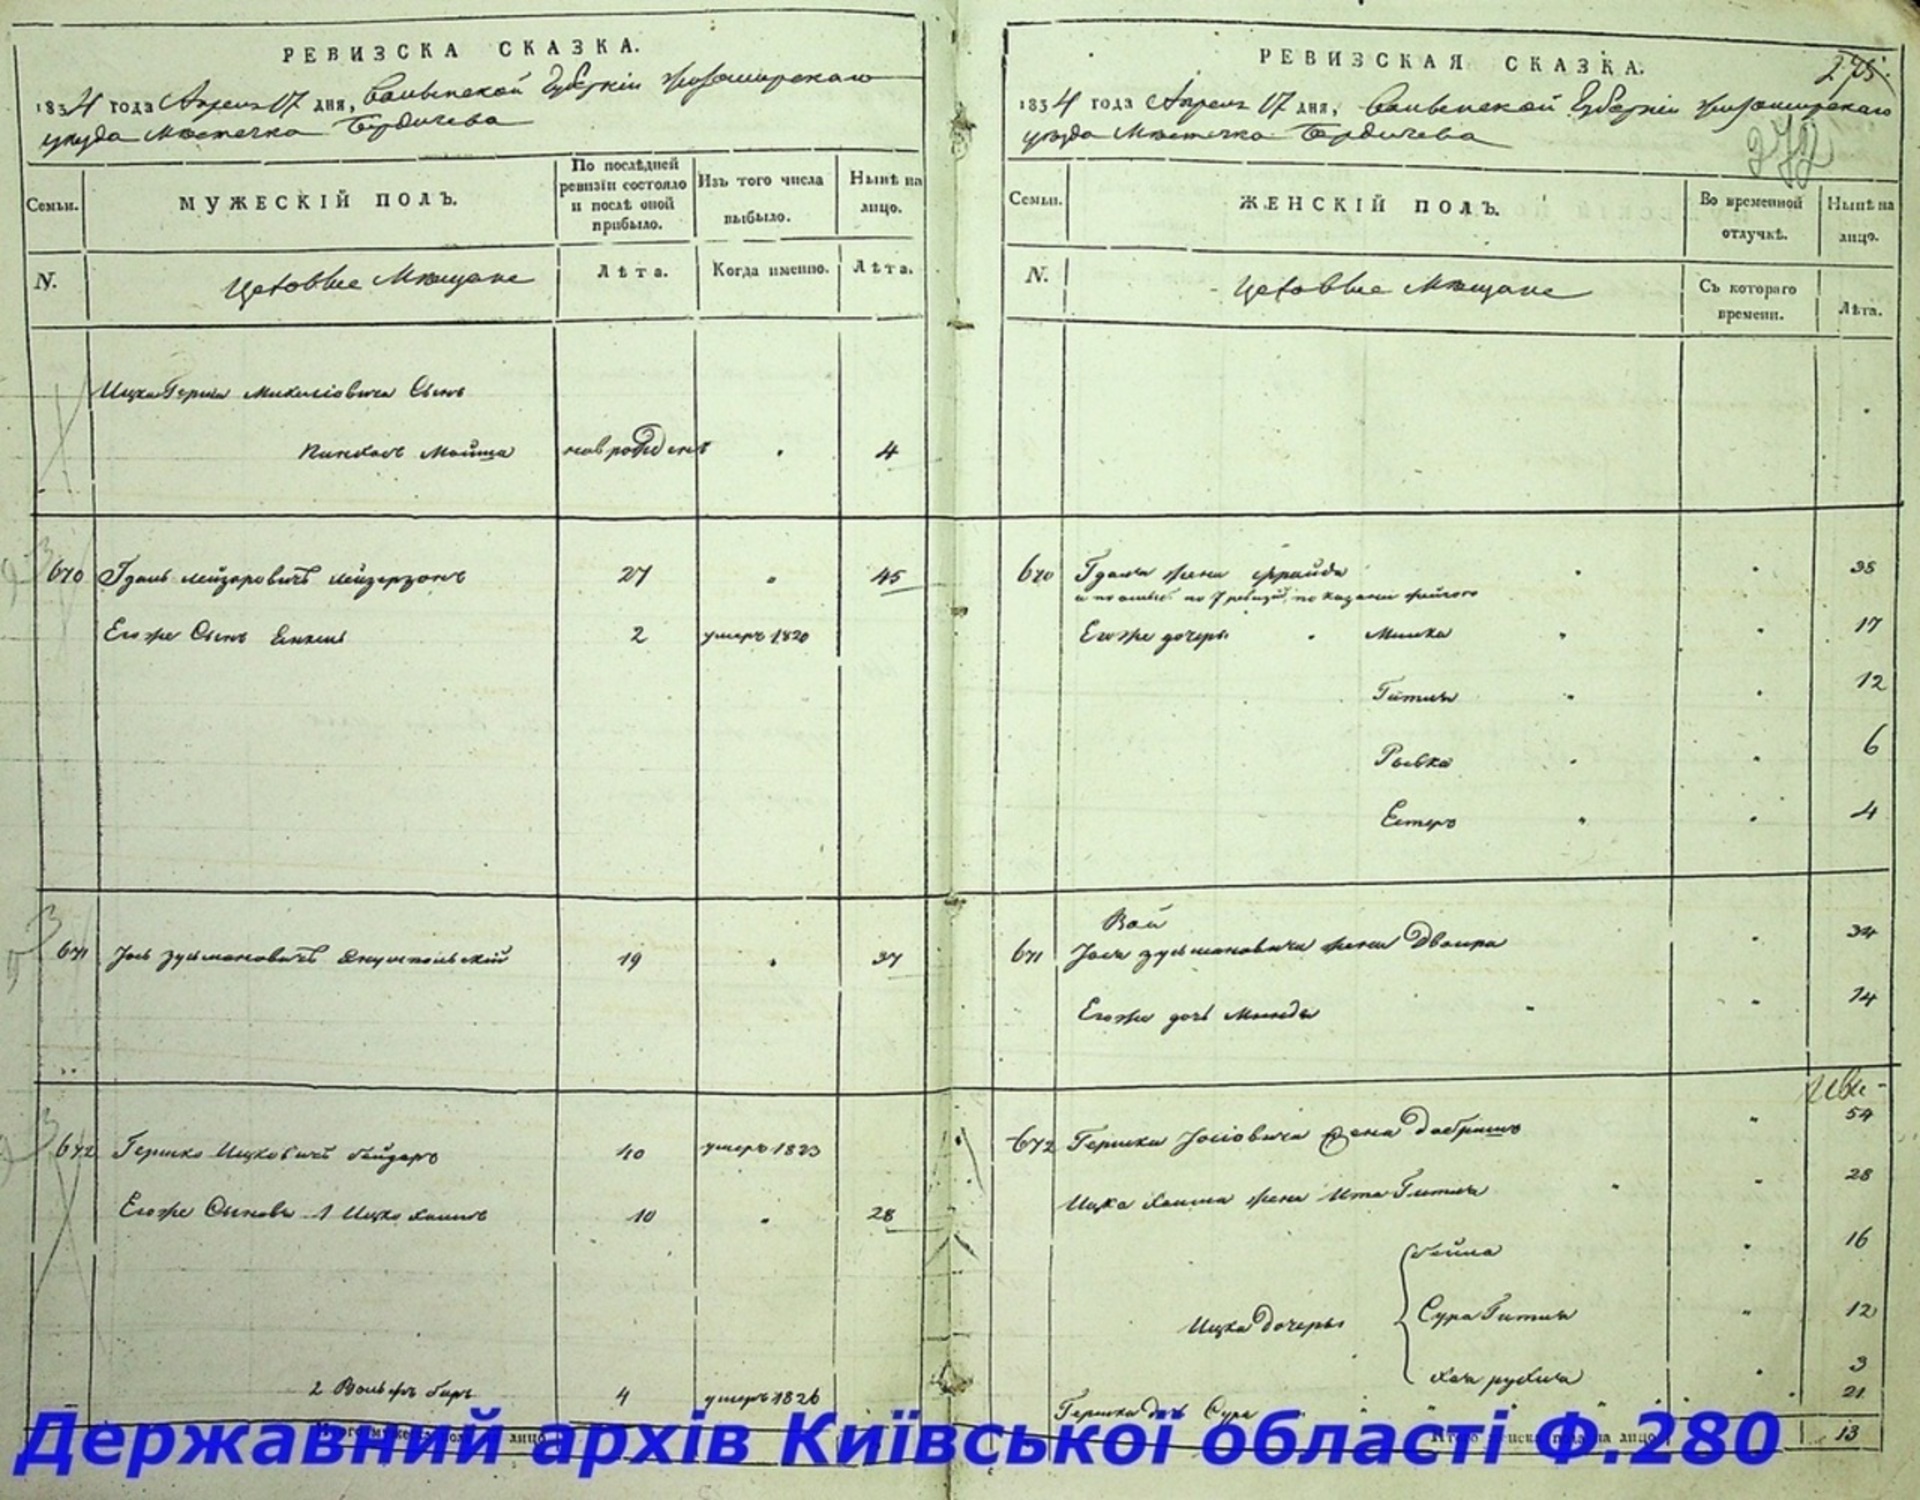 РЕВИЗСКА СКАЗКА.
1834 года Апреля 17 дня, Волынской Губернiи Житомирскаго
уезда Местечка Бердичева
Семьи.
МУЖЕСКIЙ ПОЛЪ.
По послѣдней ревизiи состояло и послѣ оной прибыло.
Изъ того числа выбыло.
Нынѣ на лицо.
N.
Цеховые Мещане
Лѣта.
Когда именно.
Лѣта.
Ицка Герша Сынъ
Пинхасъ Мошка новрожденъ 4
670 Гдаль Лейзоровичъ Лейзерзонъ 27 45
Егоже Сынъ Янкель 2 умеръ 1820
671 Iось Зусьмановичъ 19 37
672 Гершко Ицковичъ 40 умеръ 1823
Егоже Сыновья 1 Ицко Хаимъ 10 28
2 Вольфъ Беръ 4 умеръ 1826
РЕВИЗСКАЯ СКАЗКА.
275.
272
1834 года Апреля 17 дня, Волынской Губернiи Житомирскаго
уезда Местечка Бердичева
Семьи.
ЖЕНСКIЙ ПОЛЪ.
Во временной отлучкѣ.
Нынѣ на лицо.
N.
Цеховые Мещане
Съ котораго времени.
Лѣта.
670 Гдаля жена Фрайда 35
Егоже дочери Минка 17
Гитля 12
Рывка 6
Естеръ 4
671 Iося Зусьмановича жена Двойра 34
Егоже дочь Минда 14
672 Гершка Iосiовича жена Добришъ 54
Ицка Хаима жена Ита Гитля 28
Ицка дочеры
Бейла 16
Сура Гитля 12
Хая Рухля 3
Гершка дочь Сура 21
Итого женска пола на лицо 13
Итого мужеска пола на лицо
Державний архів Київської області Ф.280